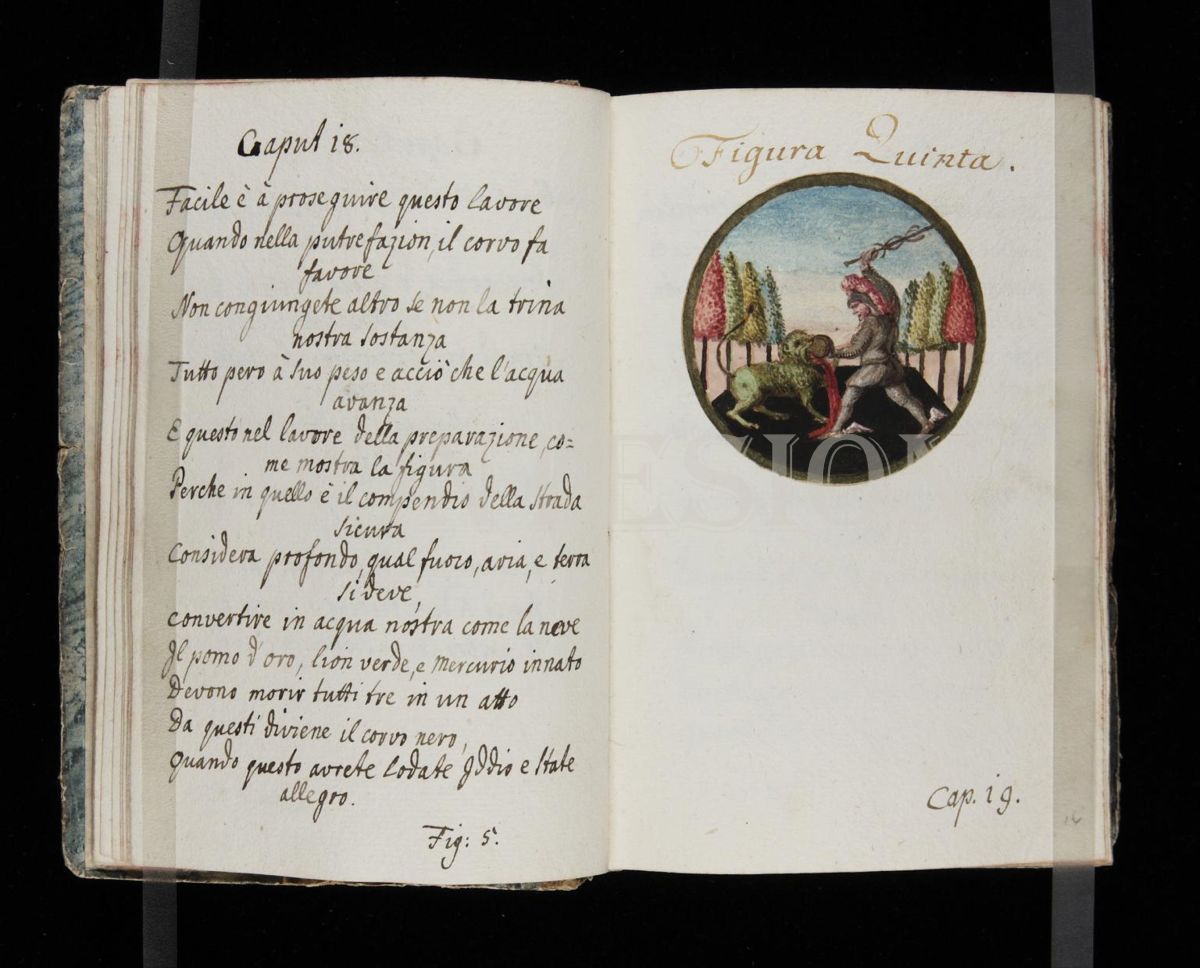 Caput 18.
Facile è à proseguire questo lavore
Quando nella putrefazion, il corvo fa
favore
Non congiungete altro se non la trina
nostra sostanza
Tutto pero à suo peso e acciò che l'acqua
avanza
E questo nel lavore della preparazione, co=
me mostra la figura
Perche in quello è il compendio della strada
sicura
Considera profondo, qual fuoco, aria, e terra
si deve,
convertire in acqua nostra come la neve
Il pomo d'oro, lion verde, e mercurio innato
Devono morir tutti tre in un atto
Da questi diviene il corvo nero,
Quando questo avrete lodate Iddio e state
allegro.
Fig: 5.
Figura Quinta.
Cap. 19.